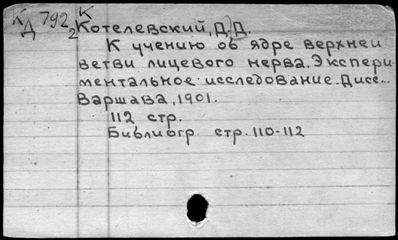 К
К 792
Д 2
Котелевский, Д.Д.
К учению об ядре верхней
ветви лицевого нерва. Экспери-
ментальное исследование. Дисс...
Варшава, 1901.
112 стр.
Библиогр стр. 110-112